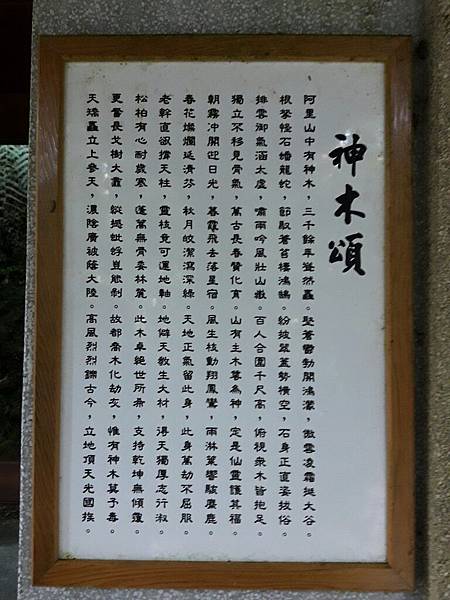 神木頌
阿里山中有神木，三千餘年聳然矗。堅蒼鬱勃開鴻濛，傲雲凌霜挺大谷。
根拏怪石蟠龍蛇，節馭蒼苔棲鴻鵠。紛披翠蓋勢橫空，石身正直姿拔俗。
排雲御氣涵太虛，嘯雨吟風壯山嶽。百人合圍千尺高，俯視衆木皆抱足。
獨立不移見骨氣，萬古長春贊化育。山有主木尊為神，定是仙靈護其福。
朝霧冲開迎日光，暮靄飛去落星宿。風生枝動翔鳳鸞，雨淋葉響駭麋鹿。
春花爛爛延清芬，秋月皎潔瀉深綠。天地正氣留此身，此身萬劫不屈服。
老幹直欲擎天柱，靈枝竟可運地軸。地僻天教生大材，得天獨厚志行淑。
松柏有心耐歲寒，蓬萬無骨委林麓。此木卓絕世所希，支持乾坤無傾覆。
更奮長戈樹大纛，縱撼蚍蜉豈能剝。故都喬木化劫灰，惟有神木莫予毒。
天矯矗立上參天，濃陰廣被蔭大陸。高風烈烈鑠古今，立地頂天光國族。